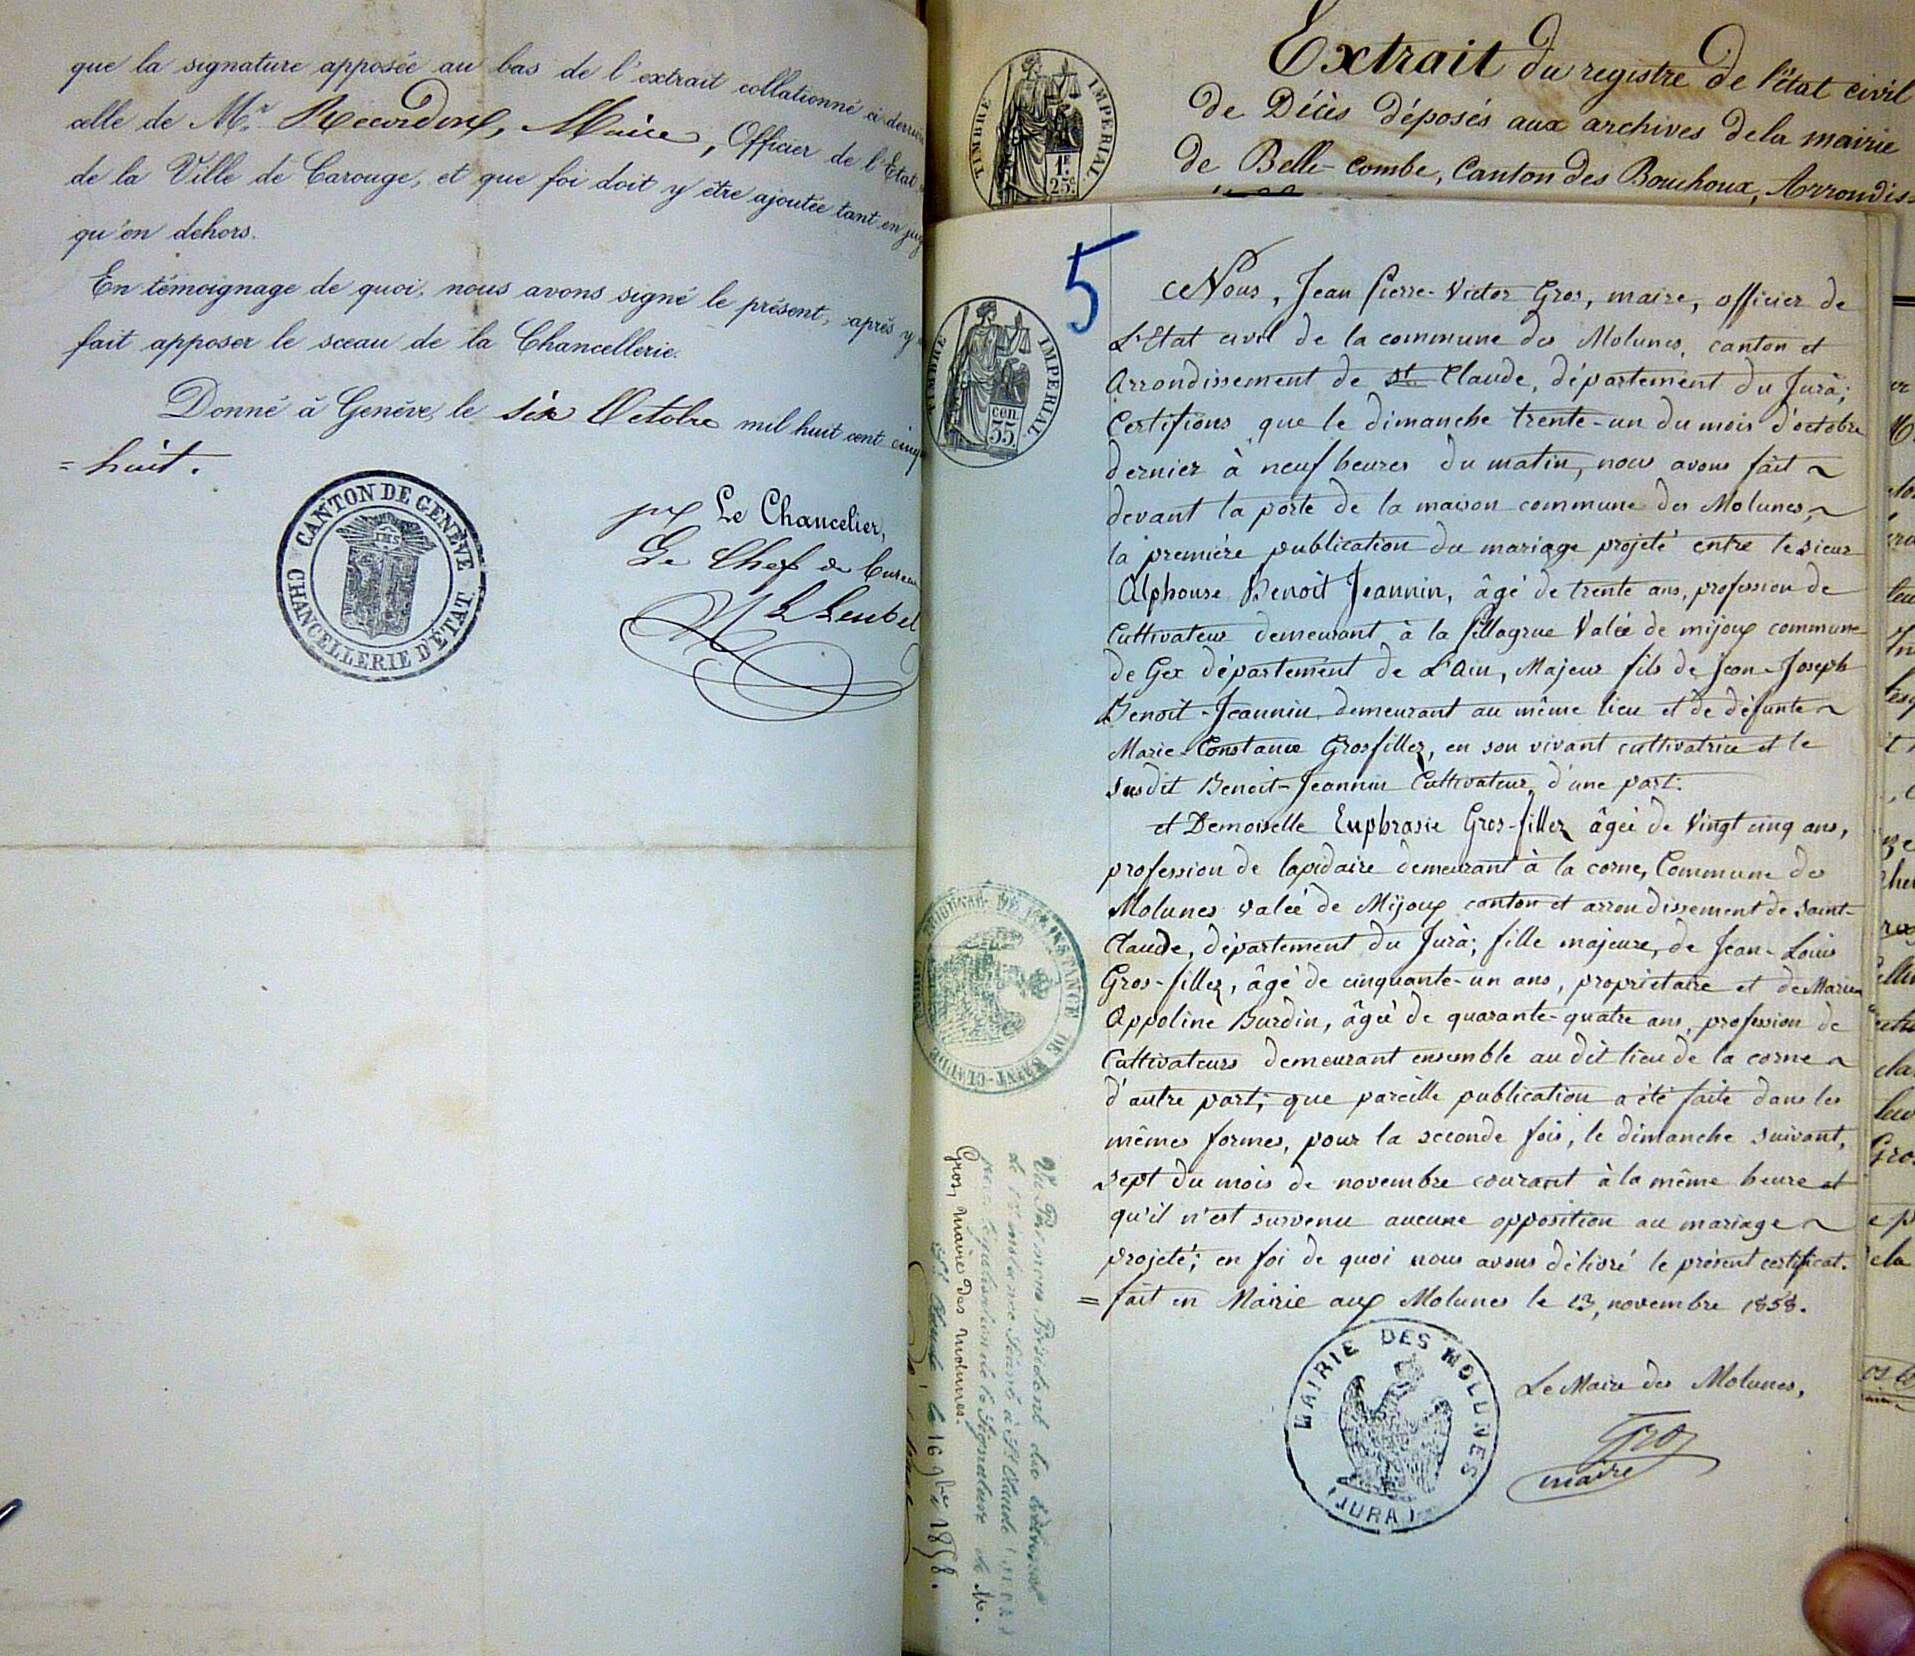 que la signature apposée au bas de l'extrait collationné ci-derrière
celle de Mr. Recordon, Maire, Officier de l'Etat
de la Ville de Carouge, et que foi doit y être ajoutée tant en
qu'en dehors.
En témoignage de quoi, nous avons signé le présent, après y
fait apposer le sceau de la Chancellerie.
Donné à Genève, le six Octobre mil huit cent
= huit.
CANTON DE GENÈVE
CHANCELLERIE D'ÉTAT.
Le Chancelier,
Le Chef de bureau
Extrait du registre de l'état civil
de Décès déposés aux archives de la mairie
de Belle-combe, Canton des Bouchoux, Arrondis
TIMBRE IMPERIAL
1F. 25c.
5
TIMBRE IMPERIAL
CEN. 35.
Nous, Jean Pierre-Victor Gros, maire, officier de
L'Etat civil de la commune des Molunes, canton et
Arrondissement de St Claude, département du Jurà;
Certifions que le dimanche trente-un du mois d'octobre
dernier à neuf heures du matin, nous avons fait ~
devant la porte de la maison commune des Molunes, ~
la première publication du mariage projeté entre le sieur
Alphonse Benoit Jeannin, âgé de trente ans, profession de
Cultivateur demeurant à la Valée de mijoux commune
de Gex département de L'Ain, Majeur fils de Jean-Joseph
Benoit-Jeannin demeurant au même lieu et de défunte ~
Marie-Constance Grosfillez, en son vivant cultivatrice et le
susdit Benoit-Jeannin Cultivateur, d'une part.
et Demoiselle Euphrasie Gros-fillez âgée de Vingt cinq ans,
profession de lapidaire demeurant à la corne, Commune des
Molunes valée de Mijoux canton et arrondissement de Saint-
Claude, département du Jurà; fille majeure, de Jean-Louis
Gros-fillez, âgé de cinquante-un ans, propriétaire et de Marie
Appoline Burdin, âgée de quarante-quatre ans, profession de
Cultivateurs demeurant ensemble au dit lieu de la corne ~
d'autre part; que pareille publication a été faite dans les
mêmes formes, pour la seconde fois, le dimanche suivant,
sept du mois de novembre courant à la même heure et
qu'il n'est survenu aucune opposition au mariage ~
projeté; en foi de quoi nous avons délivré le présent certificat.
= fait en Mairie aux Molunes le 13, novembre 1858.
MAIRIE DES MOLUNES
(JURA)
Le Maire des Molunes,
Gros
maire
TRIBUNAL DE 1re INSTANCE DE SAINT-CLAUDE
Vu Par nous Président du tribunal
de 1re instance Séant à St Claude
pour légalisation de la Signature de M.
Gros, Maire des Molunes.
St Claude, le 16 9bre 1858.